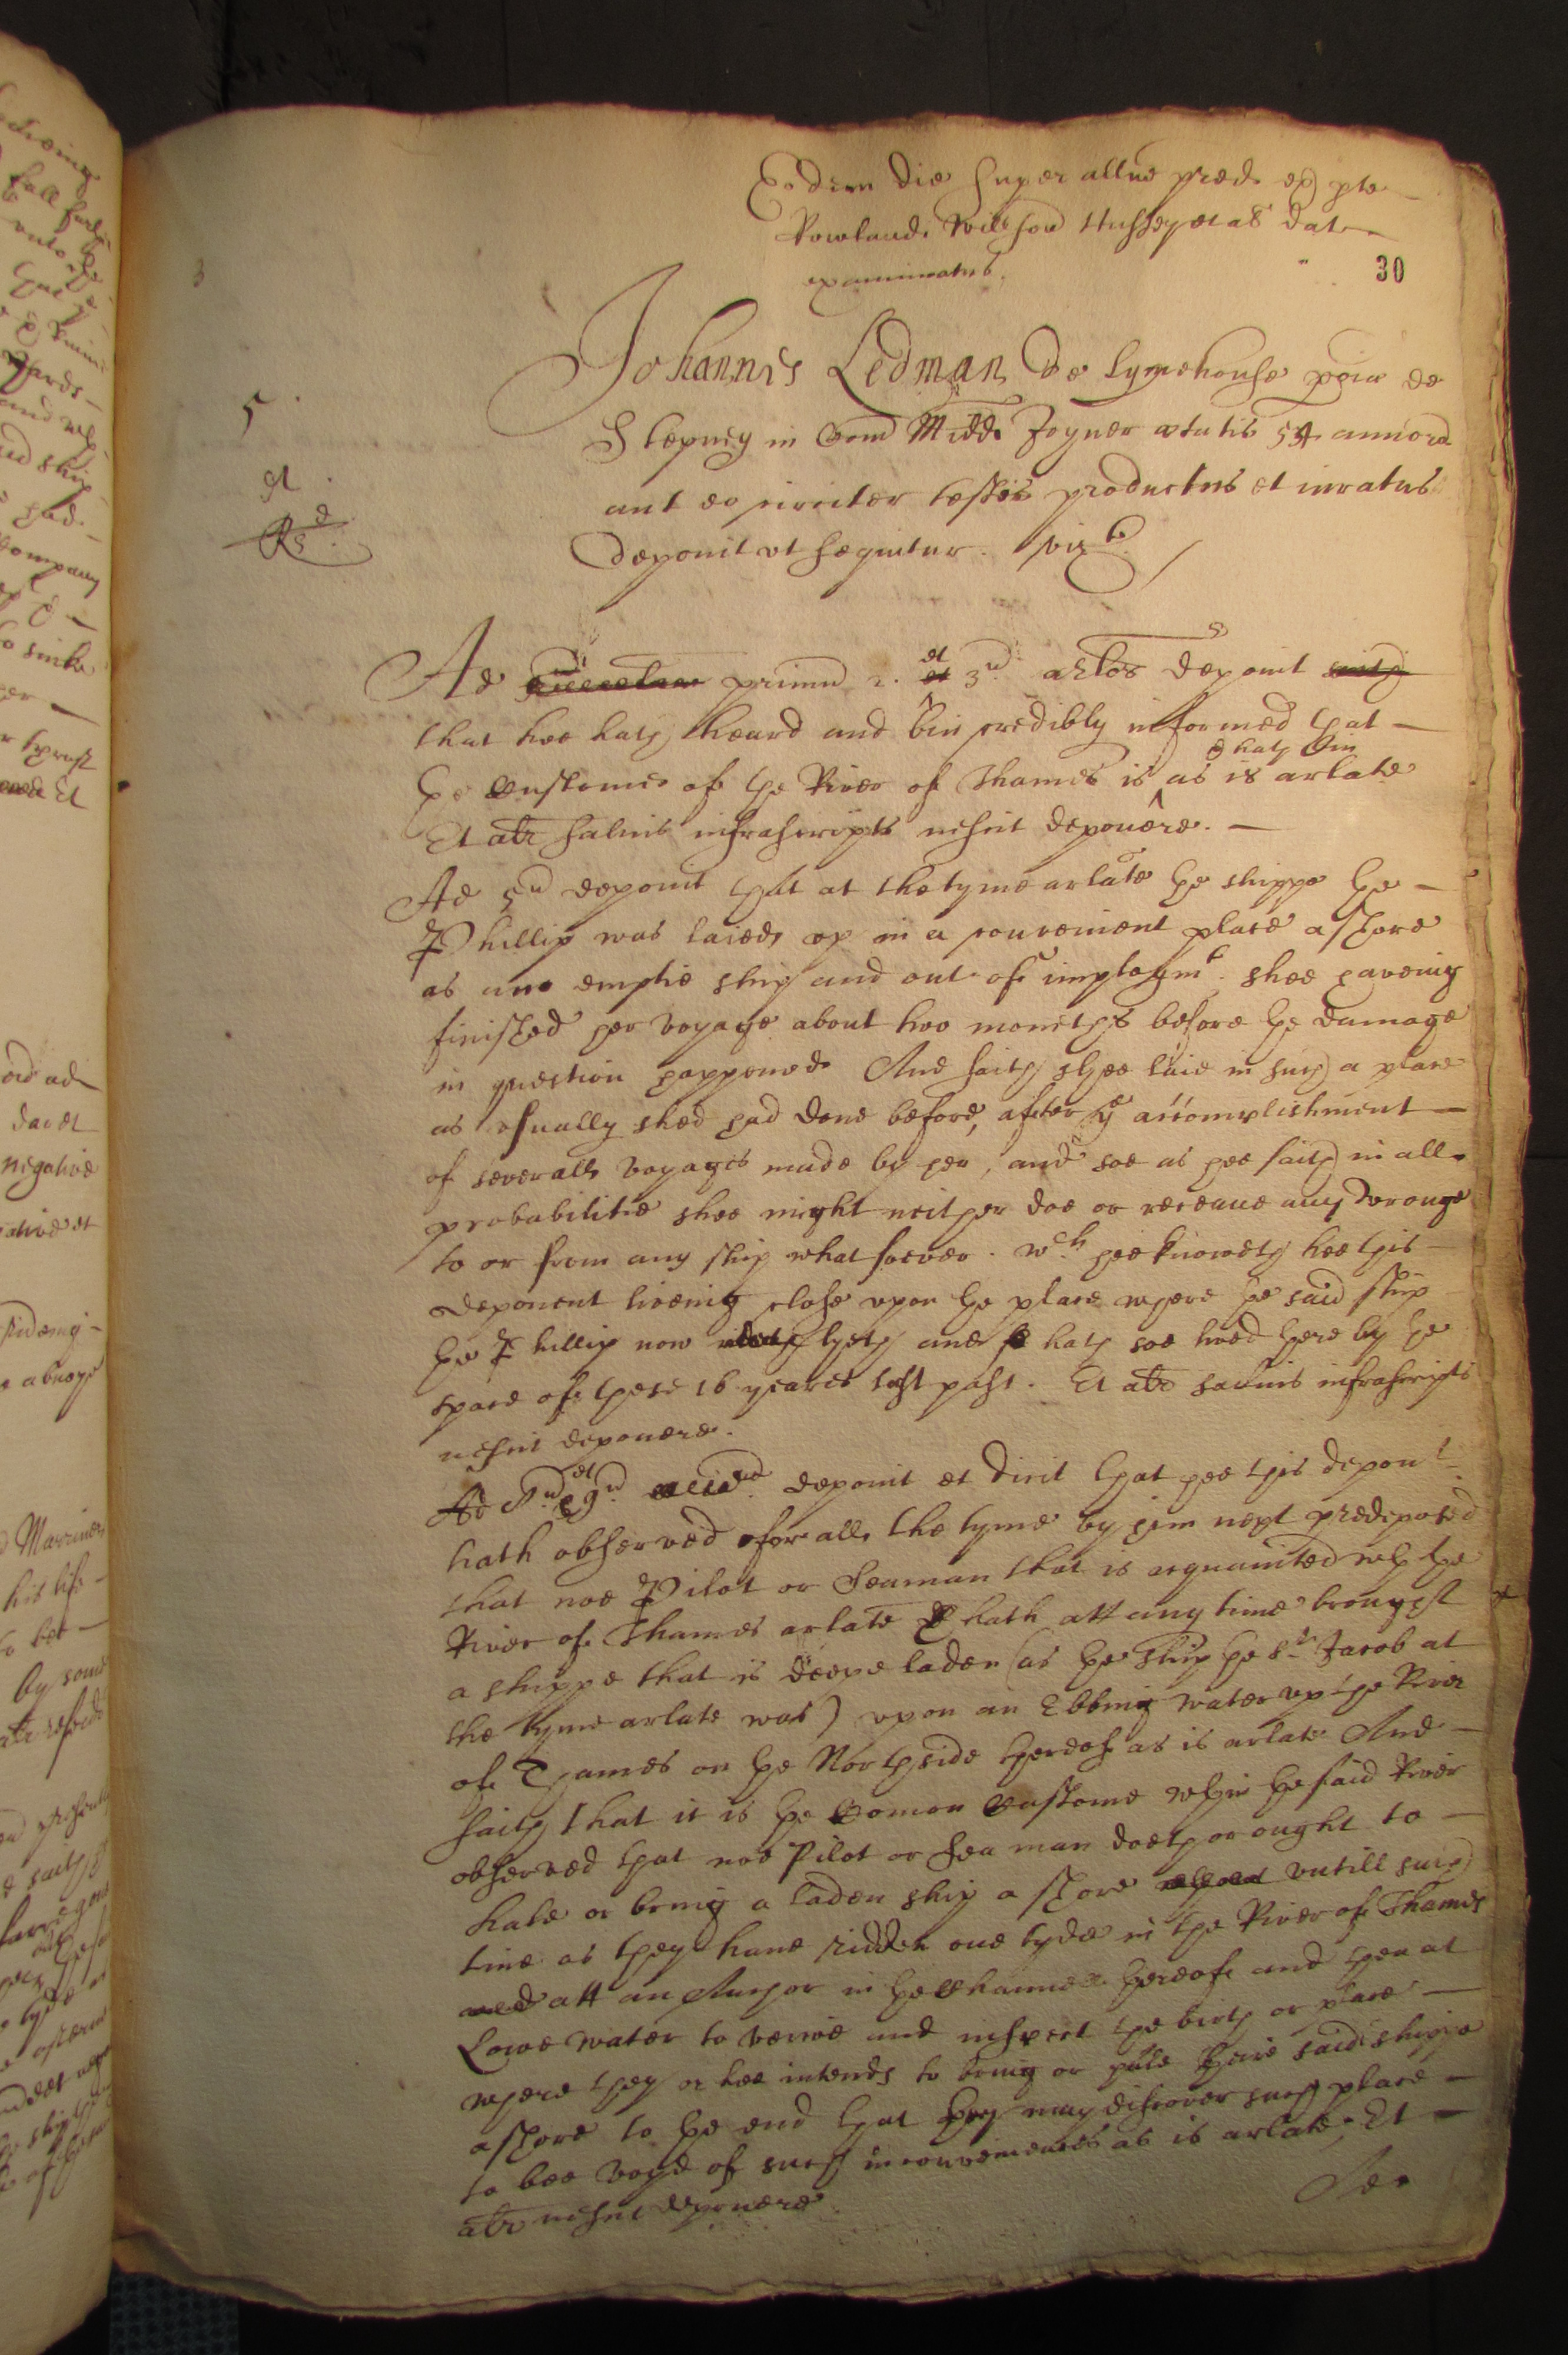 Eodem die super alltie præd ex pte
Rowlandi Willson Hussey et al dat
examinatus.
30
Johannes Ledman de Lymehouse poia de
5
Stepney in Com Midd Joyner ætatis 54 annord
aut eo circiter testis productus et iuratus
et
Rs
deponit vt sequitur. vizt
Ad primu 2. et 3u arlos deponit
that hee hath heard and bin credibly informed that
the Custome of the River of Thames is & hath bin as is arlate
Et alr salvis infrascripts nescit deponere.
Ad 5u deponit that at the tyme arlate the shippe the
Phillip was laied vp in a convenient place a shore
as an emptie ship and out of imploymt. shee haveing
finished her voyage about two moneths before the damage
in question happened And saith shee laie in such a place
as vsually shee had done before, after ye accomplishment
of severall voyages made by her, and soe as hee saith in all
probabilitie shee might neither doe or receaue any wronge
to or from any ship whatsoever. wch hee knoweth hee this
deponent liveing close vpon the place where the said ship
the Phillip now lyeth and hath soe lived there by the
space of these 16 yeares last past. Et alr salvis infrascripts
nescit deponere.
Ad 8u et 9u deponit et dicit that hee this depont
hath observed for all the tyme by him next predeposed
that noe Pilot or Seaman that is acquainted wth the
River of Thames arlate hath att any time brought
a shippe that is deepe laden (as the ship the St Jacob at
the tyme arlate was) vpon an Ebbing water vp the River
of Thames on the Northside thereof as is arlate And
saith that it is the Comon Custome wthin the said River
observed that noe Pilot or Sea man doeth or ought to
hale or bring a laden ship a shore vntill such
time as they haue ridden one tyde in the River of Thames
att an Anchor in the Channell thereof and then at
Lowe water to veiwe and inspect the birth or place
where they or hee intends to bring or hale theire said shippe
ashore to the end that they may discover such place
to bee voyd of such inconveniences as is arlate, Et
alr nescit deponere.
Ad